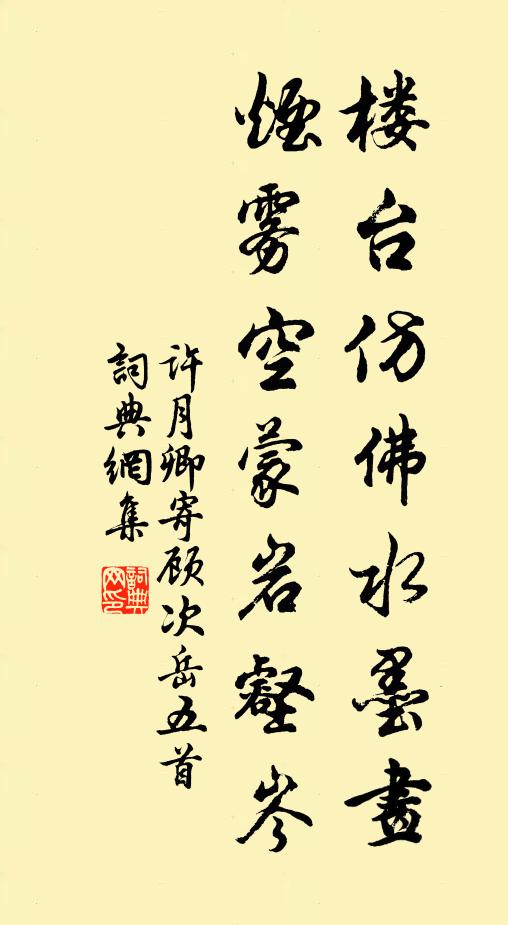 楼台仿佛水墨畫
煙雾空蒙岩壑岑
许月卿寄顾次岳五首
詞典網集
詞典網印